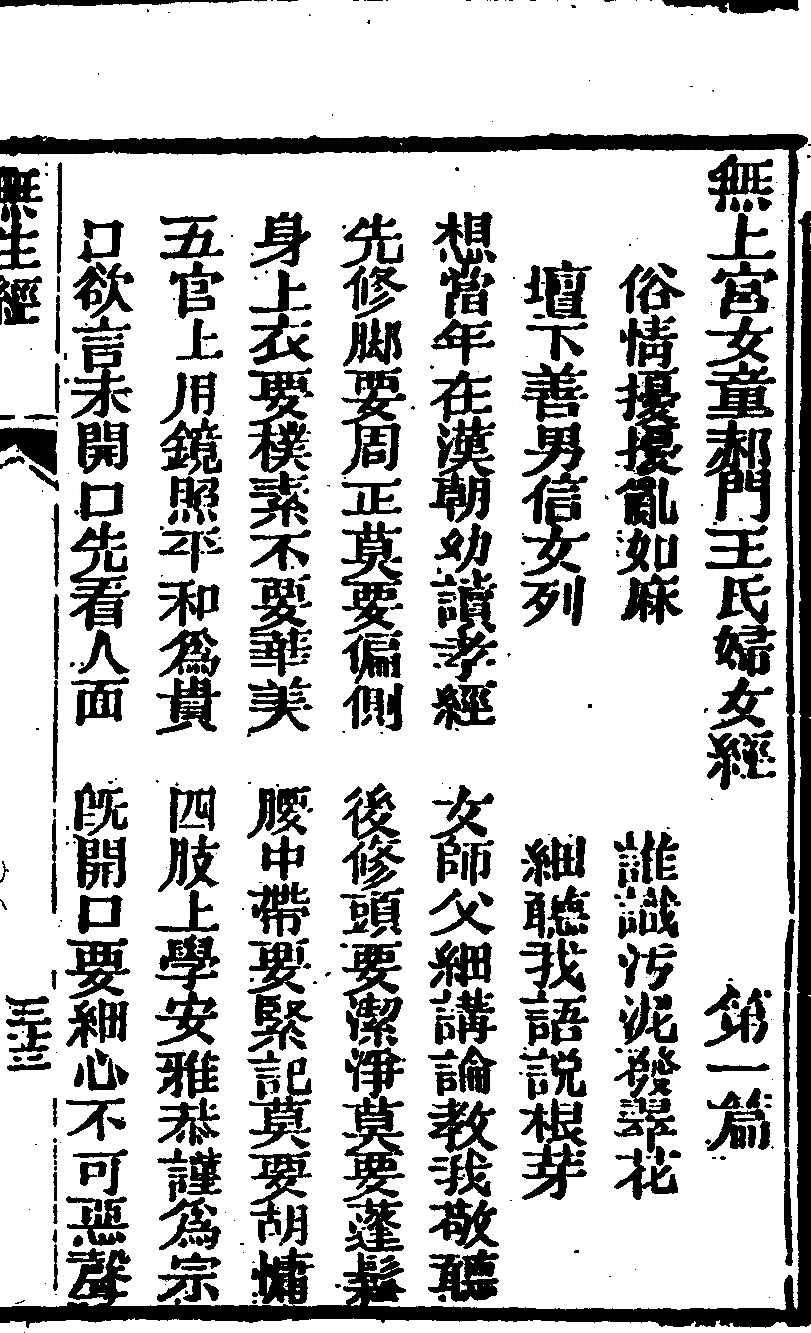 無上宮女童郝門王氏婦女經 第一篇
俗情擾擾亂如麻 誰識污泥發翠花
壇下善男信女列 細聽我語說根芽
想當年在漢朝幼讀孝經 女師父細講論教我敬聽
先修脚要周正莫要偏側 後修頭要潔淨莫要蓬鬆
身上衣要樸素不要華美 腰中帶要緊記莫要胡慵
五官上用鏡照平和為貴 四肢上學安雅恭謹為宗
口欲言未開口先看人面 旣開口要細心不可惡聲
無生經